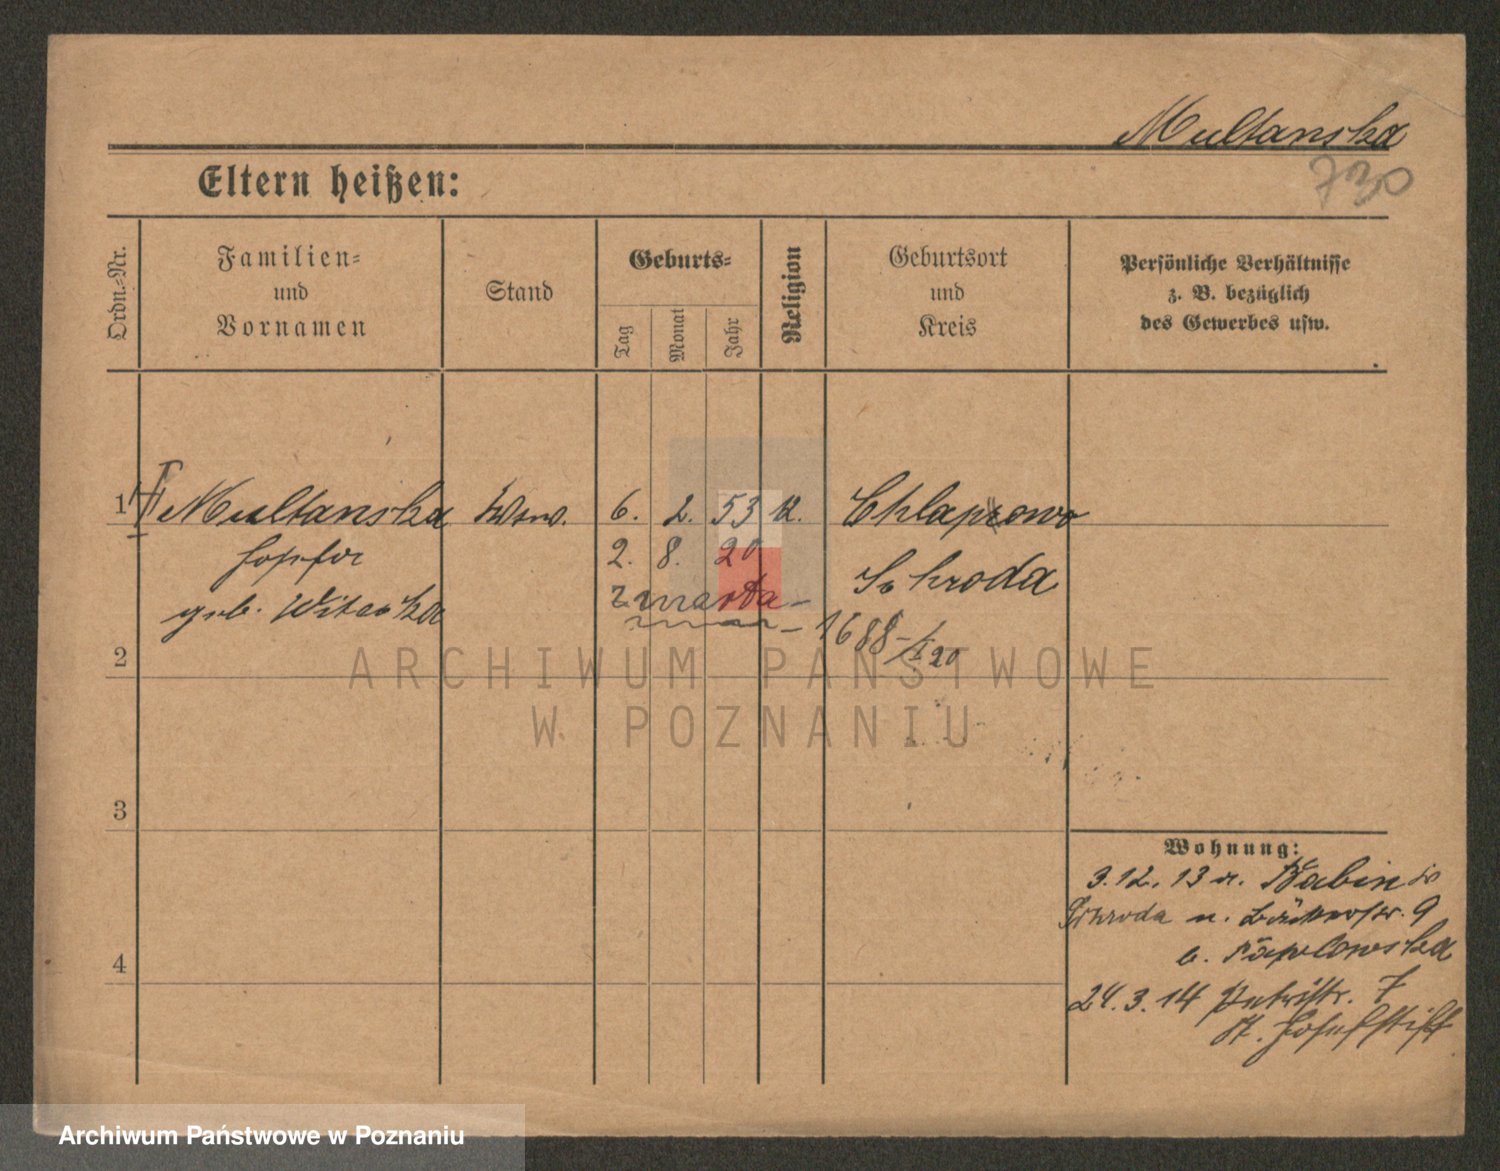 Multanska
730
Eltern heißen:
Ordn.-Nr.
Familien-
und
Vornamen
Stand
Geburts-
Tag
Monat
Jahr
Religion
Geburtsort
und
Kreis
Persönliche Verhältnisse
z. B. bezüglich
des Gewerbes usw.
1 Multanska Wwe. 6. 2. 53 k. Chlapowo
2. 8. 20 Schroda
geb. Witaska zmarła
1688/20
2
ARCHIWUM PAŃSTWOWE
W POZNANIU
3
Wohnung:
3.12.13 v. Babin
Schroda n. Bäckerstr. 9
b. Pawlowska
4
24.3.14 Petristr. 7
St. Josefstift
Archiwum Państwowe w Poznaniu